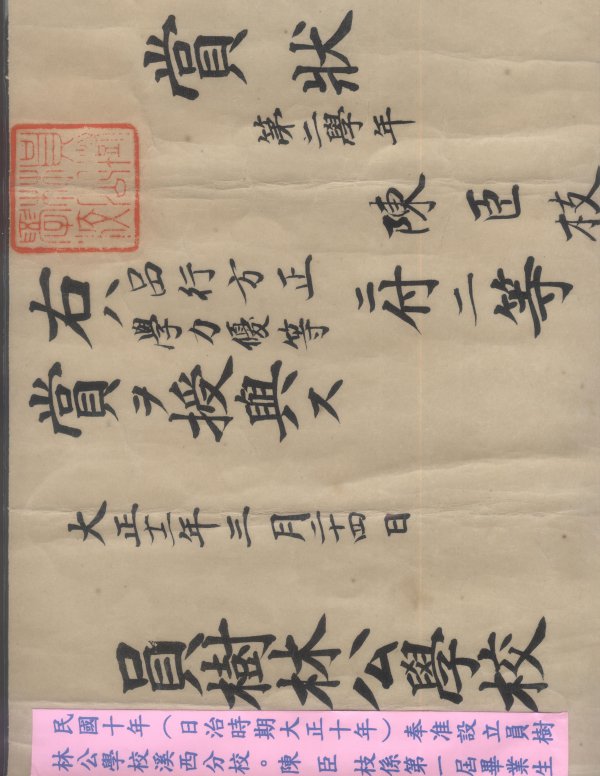 賞狀
第二學年
陳臣枝
右ハ品行方正
學力優等ニ付二等
賞ヲ授與ス
大正十二年三月二十四日
員樹林公學校
民國十年（日治時期大正十年）奉准設立員樹
林公學校溪西分校。陳臣枝係第一屆畢業生